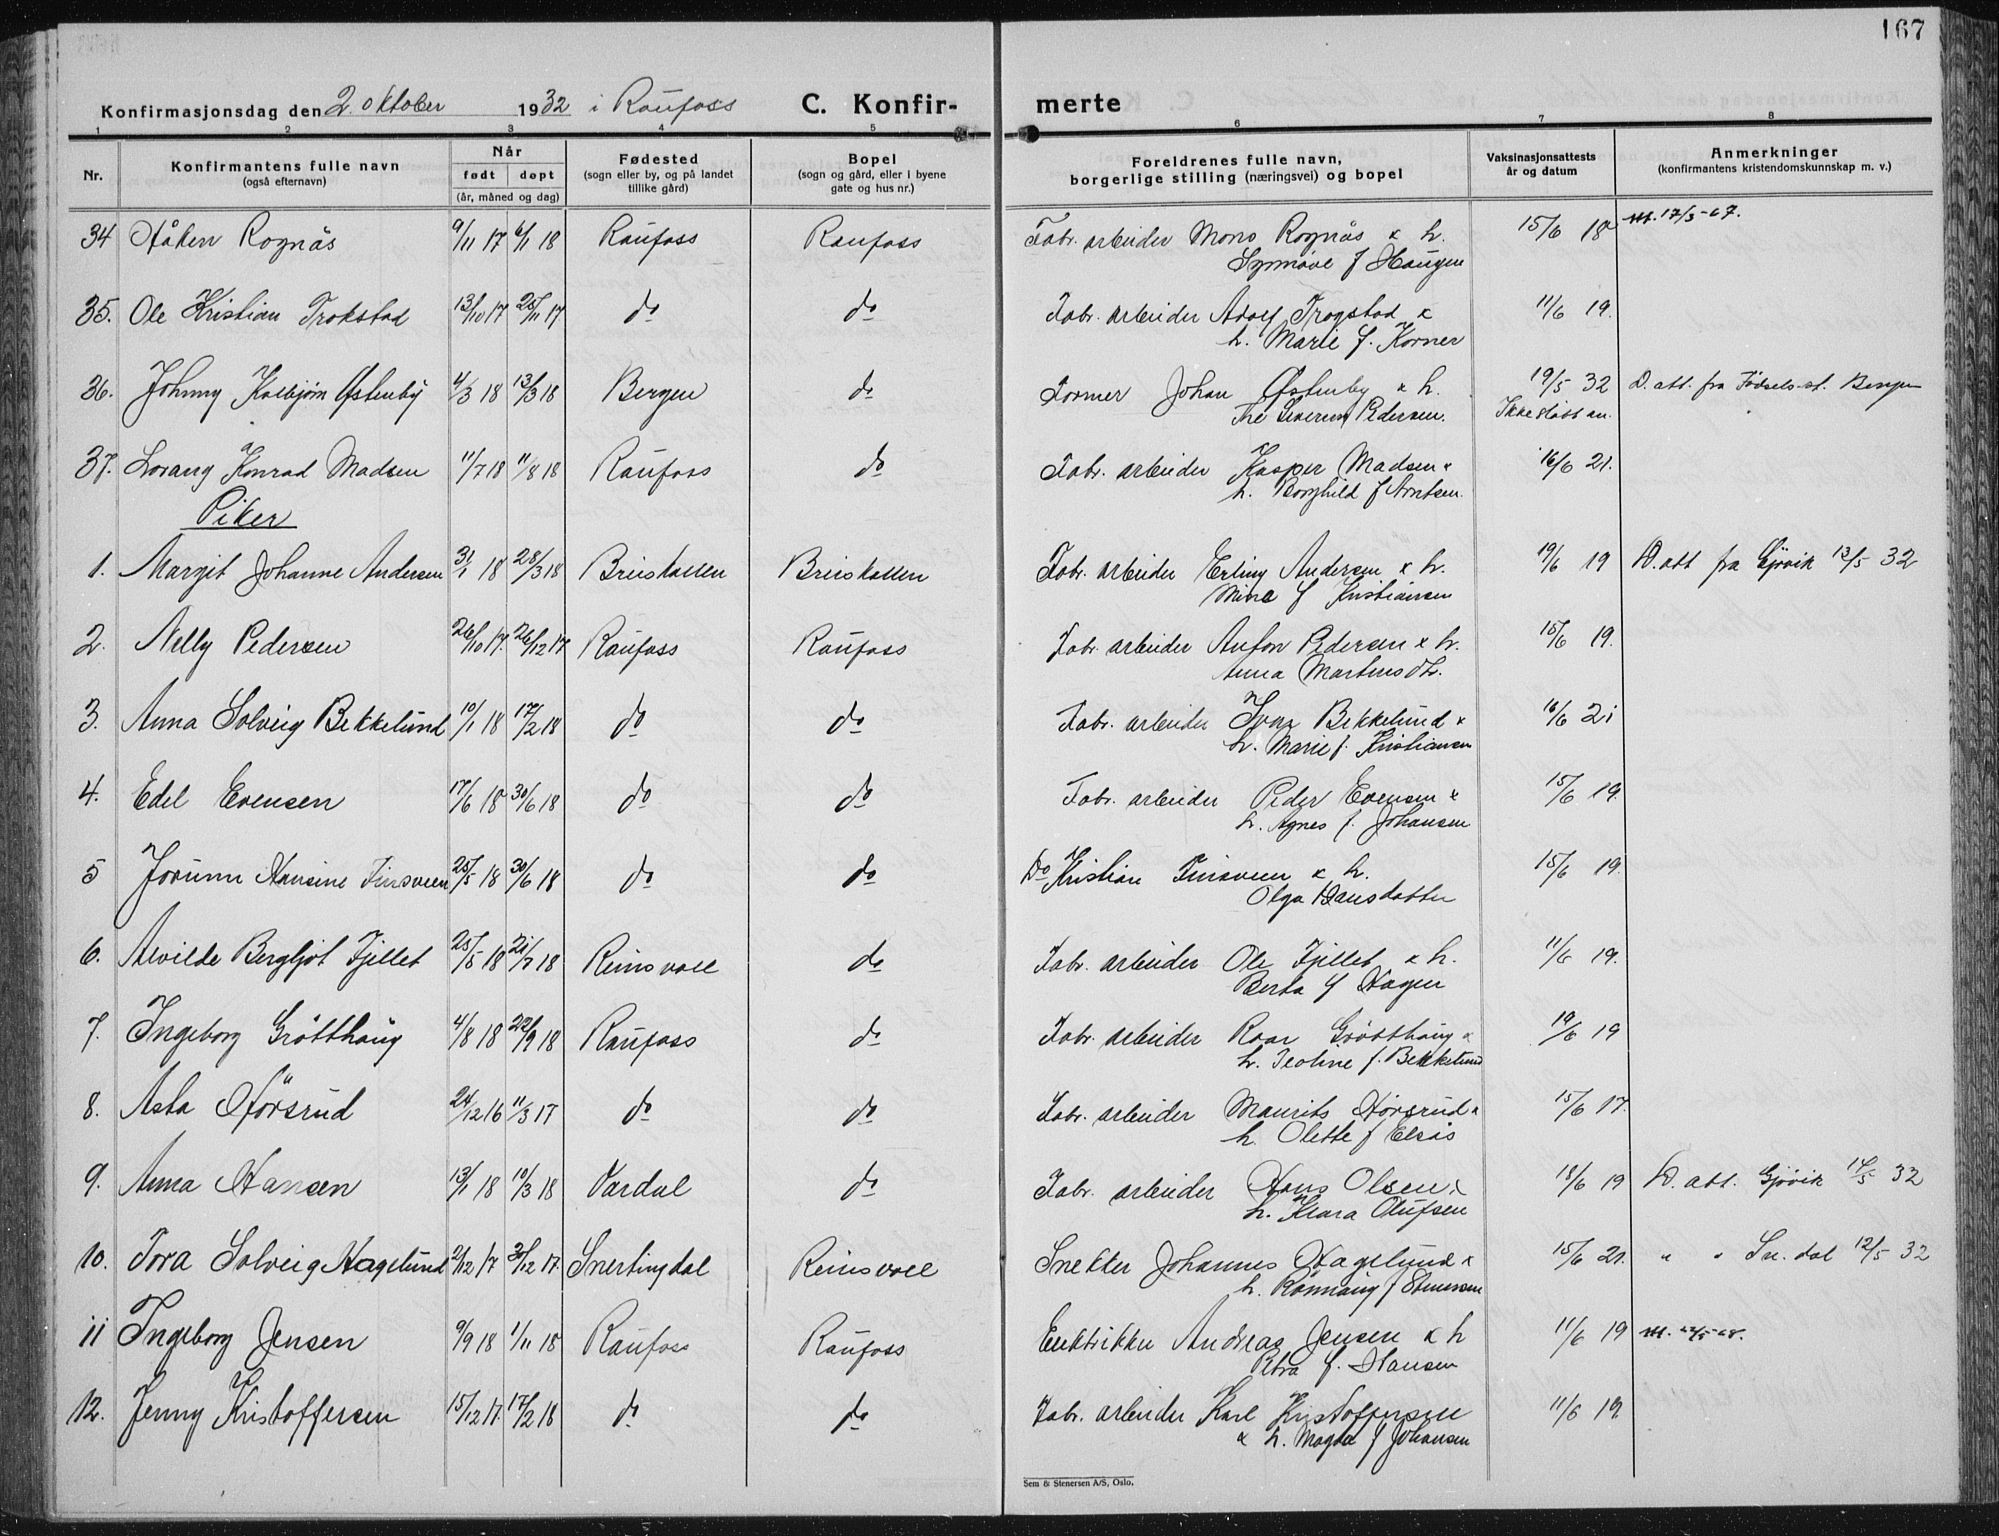 167
Konfirmasjonsdag den 2. oktober 1932 i Raufoss C. Konfir- merte
1 2 3 4 5 6 7 8
Nr. Konfirmantens fulle navn (også efternavn) Når født døpt (år, måned og dag) Fødested (sogn eller by, og på landet tillike gård) Bopel (sogn og gård, eller i byene gate og hus nr.) Foreldrenes fulle navn, borgerlige stilling (næringsvei) og bopel Vaksinasjonsattests år og datum Anmerkninger (konfirmantens kristendomskunnskap m. v.)
34 Håken Rognås 9/11 17 6/1 18 Raufoss Raufoss Fabr. arbeider Mons Rognås & h. 15/6 18 m. 17/3-67.
Synnöve f Haugen
35. Ole Kristian Trokstad 13/10 17 25/11 17 do do Fabr. arbeider Adolf Trogstad & 11/6 19.
h. Marie f. Korner
36. Johnny Kolbjörn Østenby 4/3 18 13/3 18 Bergen do Former Johan Østenby & h. 19/5 32 D. att. fra Fødsels-st. Bergen
Pedersen. Ikke slått an.
37. Lorang Konrad Madsen 11/7 18 11/8 18 Raufoss do Fabr. arbeider Kasper Madsen & 16/6 21.
h. Borghild f Arntsen.
Piker
1. Margit Johanne Andersen 31/1 18 28/3 18 Breiskallen Breiskallen Fabr. arbeider Erling Andersen & h. 19/6 19 D. att fra Gjövik 13/5 32
Mina f Kristiansen
2. Nelly Pedersen 26/10 17. 26/12 17 Raufoss Raufoss Fabr. arbeider Anton Pedersen & h. 15/6 19.
Anna Martinsdtr.
3. Anna Solveig Bekkelund 10/1 18 17/2 18 do do Fabr. arbeider Ivar Bekkelund & 16/6 21
h. Marie f. Kristiansen
4. Edel Evensen 17/6 18 30/6 18 do do Fabr. arbeider Peder Evensen & 15/6 19.
h. Agnes f. Johansen
5 Jorunn Hansine Finsveen 25/5 18 30/6 18 do do Do Kristian Finsveen & h. 15/6 19.
Olga Hansdatter
6. Alvilde Bergljot Fjellet 25/5 18 21/7 18 Reinsvoll do Fabr. arbeider Ole Fjellet & h. 11/6 19.
Berta f Hagen
7. Ingeborg Grötthaug 4/8 18 22/9 18 Raufoss do Fabr. arbeider Roar Gröotthaug & 19/6 19
h. Teoline f. Bekkelund
8. Asta Hörsrud 24/12 16 11/3 17 do do Fabr. arbeider Maurits Hörsrud & 15/6 17.
h. Olette f Elsås
9. Anna Hansen 13/1 18 10/3 18 Vardal do Fabr. arbeider Hans Olsen & 18/6 19 D. att. Gjövik 14/5 32
h. Klara Olufsen
10. Tora Solveig Hagelund 2/12 17 30/12 17. Snertingdal Reinsvoll Snekker Johannes Hagelund & 15/6 21. " " Sn. dal 12/5 32
h. Rönnaug f
11 Ingeborg Jensen 9/9 18 1/11 18 Raufoss Raufoss Elektriker Andreas Jensen & h 11/6 19
Petra f. Hansen
12. Jenny Kristoffersen 15/12 17. 17/2 18 do do Fabr. arbeider Karl Kristoffersen 11/6 19
& h. Magda f Johansen
Sem & Stenersen A/S, Oslo.